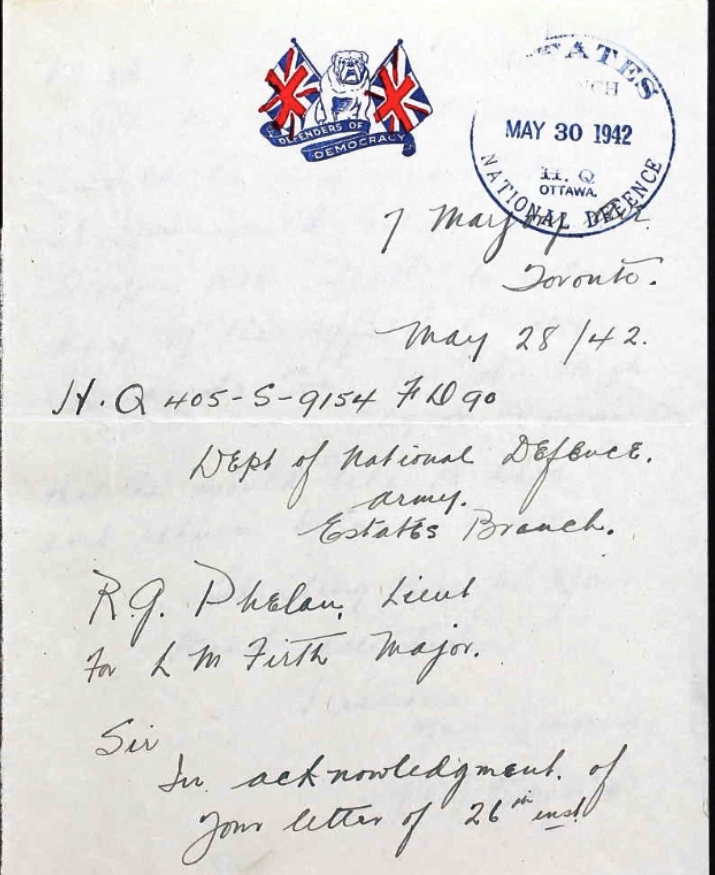 DEFENDERS OF
DEMOCRACY
ESTATES
MAY 30 1942
H. Q
OTTAWA.
NATIONAL DEFENCE
7 May
Toronto.
May 28/42.
H.Q 405-S-9154 FD90
DEpt of National DEfENCE.
army.
EstatEs Branch.
R.G. PhElan, Lieut
For L M Firth Major.
Sir
In acknowledgment. of
your letter of 26th inst